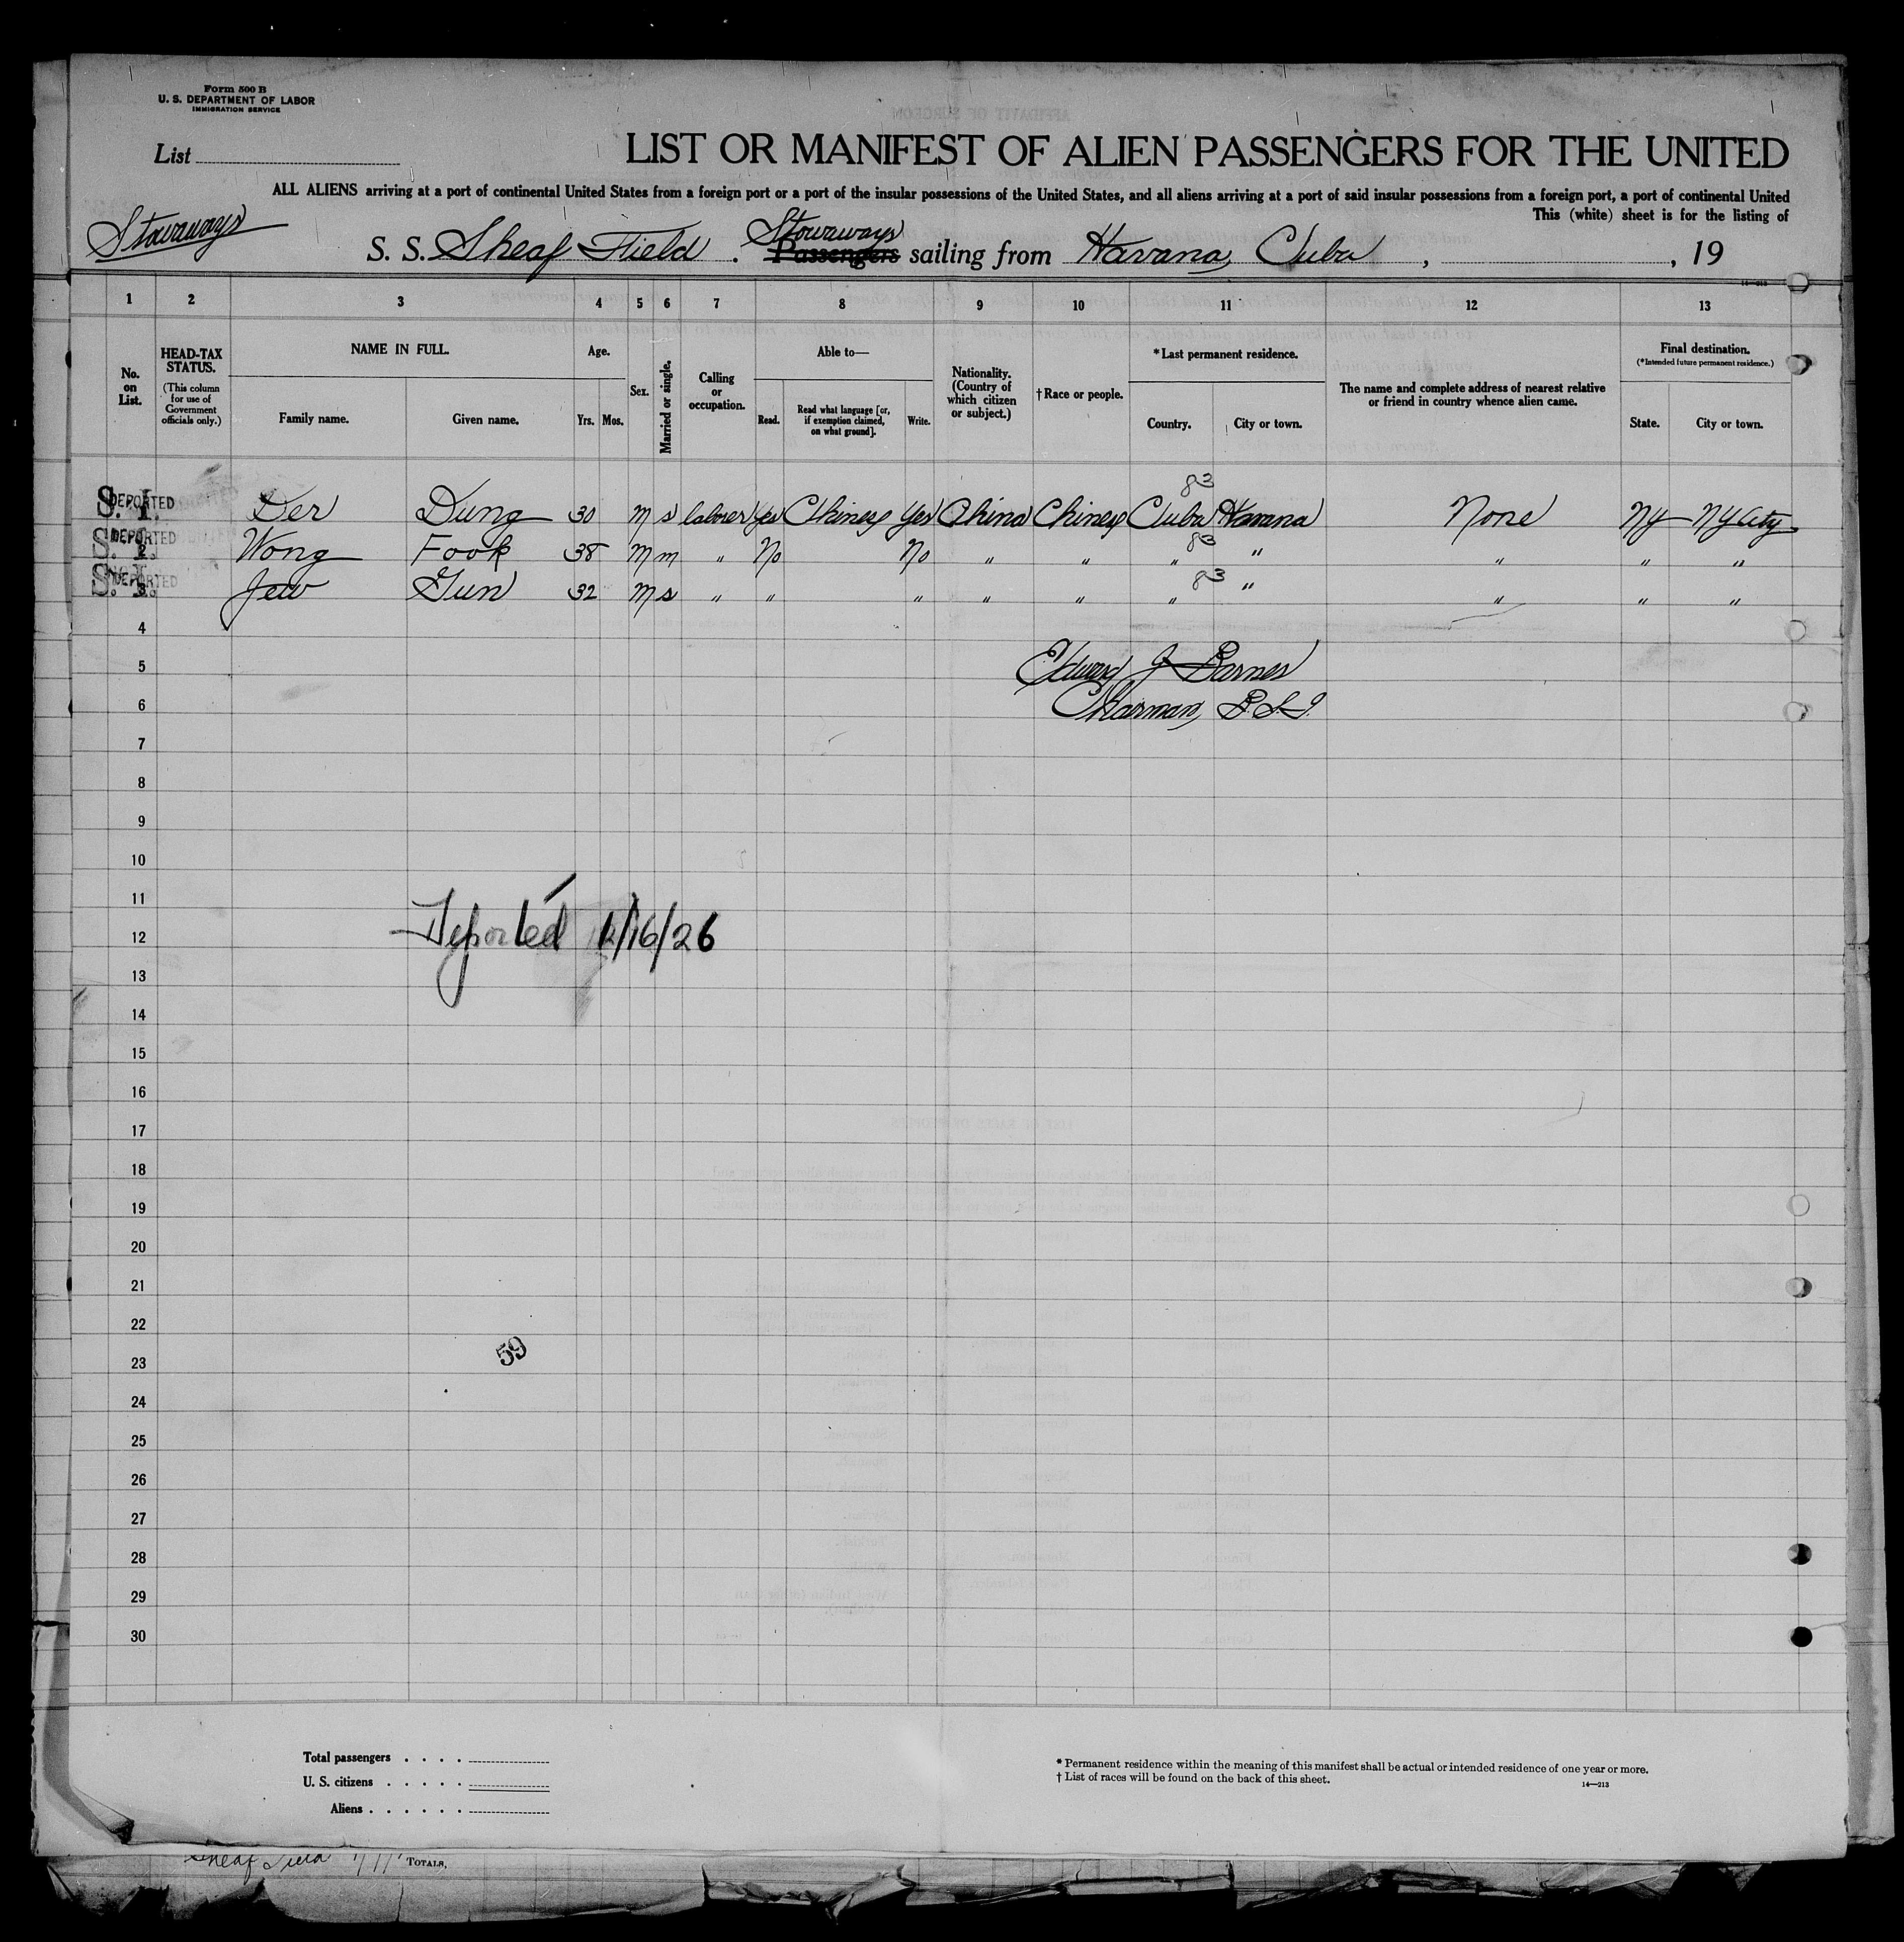 Form 500 B
U. S. DEPARTMENT OF LABOR
IMMIGRATION SERVICE
List
LIST OR MANIFEST OF ALIEN PASSENGERS FOR THE UNITED
ALL ALIENS arriving at a port of continental United States from a foreign port or a port of the insular possessions of the United States, and all aliens arriving at a port of said insular possessions from a foreign port, a port of continental United
This (white) sheet is for the listing of
Stowaways
Stowaways
S. S. Sheaf Field . Passengers sailing from Havana, Cuba , , 19
14—213
1 2 3 4 5 6 7 8 9 10 11 12 13
No. on List.
HEAD-TAX STATUS.
(This column for use of Government officials only.)
NAME IN FULL.
Family name. Given name.
Age.
Yrs. Mos.
Sex.
Married or single.
Calling or occupation.
Able to—
Read. Read what language [or, if exemption claimed, on what ground]. Write.
Nationality. (Country of which citizen or subject.)
†Race or people.
*Last permanent residence.
Country. City or town.
The name and complete address of nearest relative or friend in country whence alien came.
Final destination.
(*Intended future permanent residence.)
State. City or town.
83
S. I. DEPORTED Der Dung 30 m s laborer Yes Chinese Yes China Chinese Cuba Havana None NY NY City
83
S. I. DEPORTED 2 Wong Fook 38 m m " No No " " " " " " "
83
S. I. DEPORTED 3 Jew Gun 32 m s " " " " " " " " " "
4
5 Edward J Barnes
6 Chairman, B.S.I.
7
8
9
10
11
12 Deported 1/16/26
13
14
15
16
17
18
19
20
21
22
59
23
24
25
26
27
28
29
30
Total passengers . . . .
U. S. citizens . . . . .
Aliens . . . . . .
* Permanent residence within the meaning of this manifest shall be actual or intended residence of one year or more.
† List of races will be found on the back of this sheet.
14—213
Sheaf Field
TOTALS,